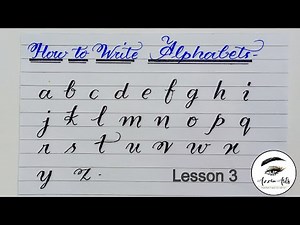 How to Write Alphabets-
a b c d e f g h i
j k l m n o p q
r s t u v w x
y z .
Lesson 3